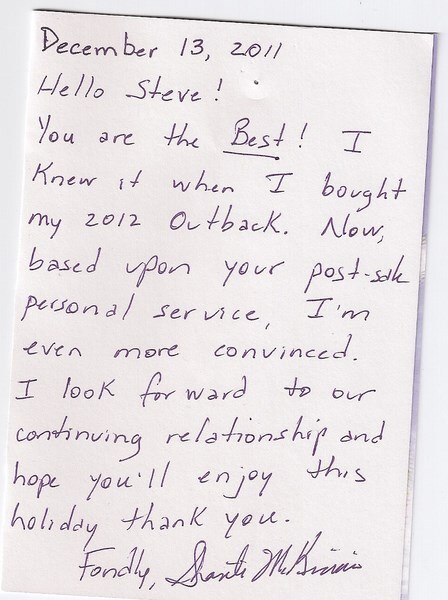 December 13, 2011
Hello Steve!
You are the Best! I
Knew it when I bought
my 2012 Outback. Now,
based upon your post-sale
personal service, I'm
even more convinced.
I look forward to our
continuing relationship and
hope you'll enjoy this
holiday thank you.
Fondly,